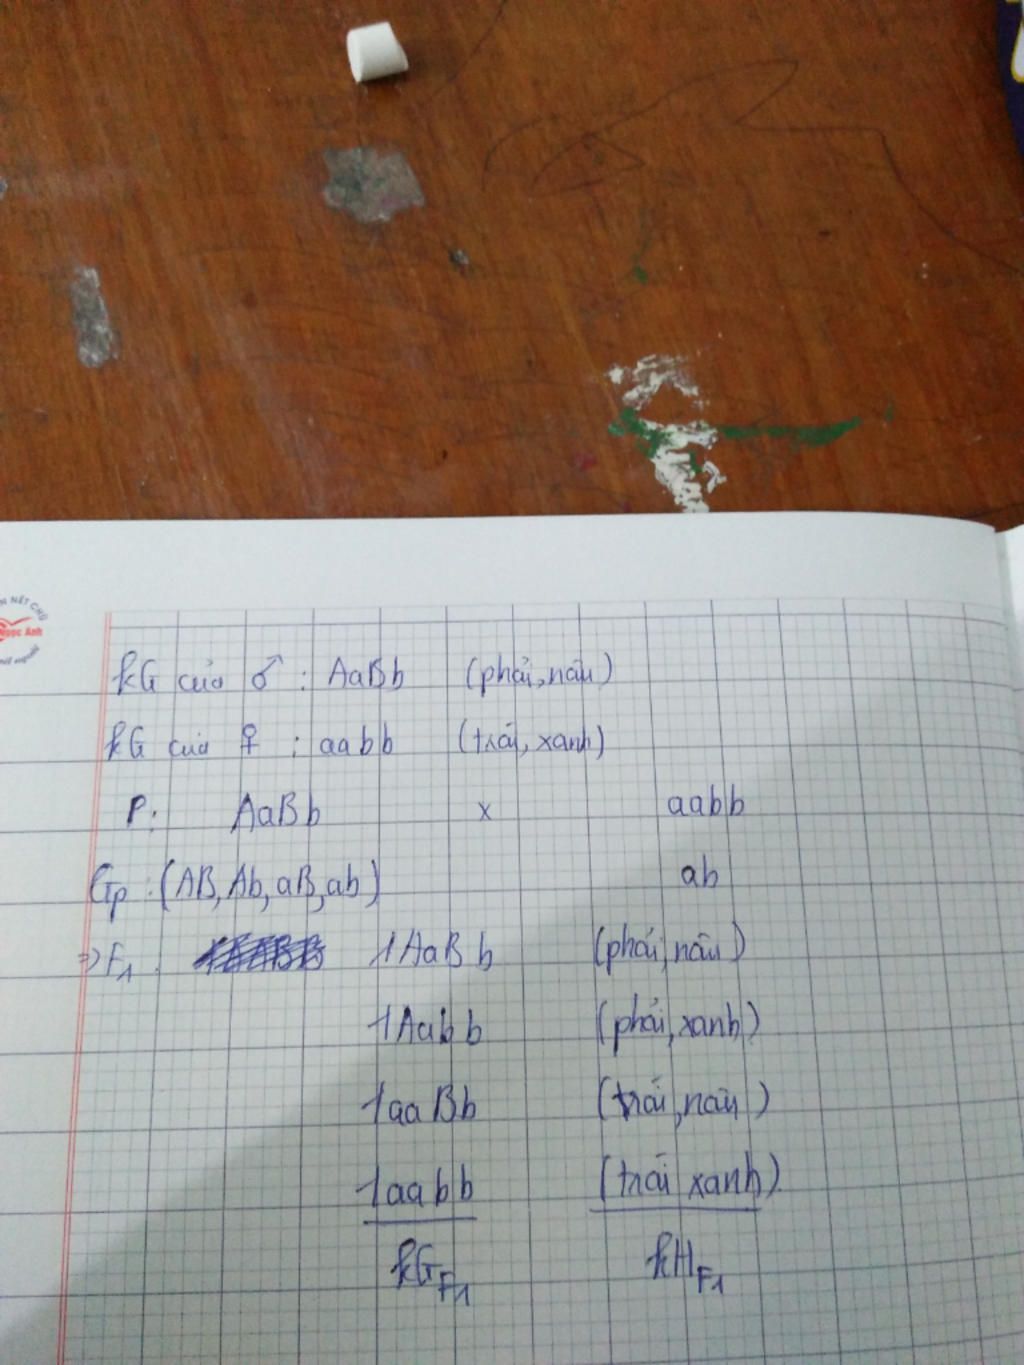 N NẾT CHỮ
Ngọc Ánh
KG của ♂ : AaBb (phải, nâu)
KG của ♀ : aabb (trái, xanh)
P: AaBb x aabb
Gp : (AB, Ab, aB, ab) ab
=> F1 : 1AaBb (phải, nâu)
1Aabb (phải, xanh)
1aaBb (trái, nâu)
1aabb (trái xanh)
KG F1 KH F1